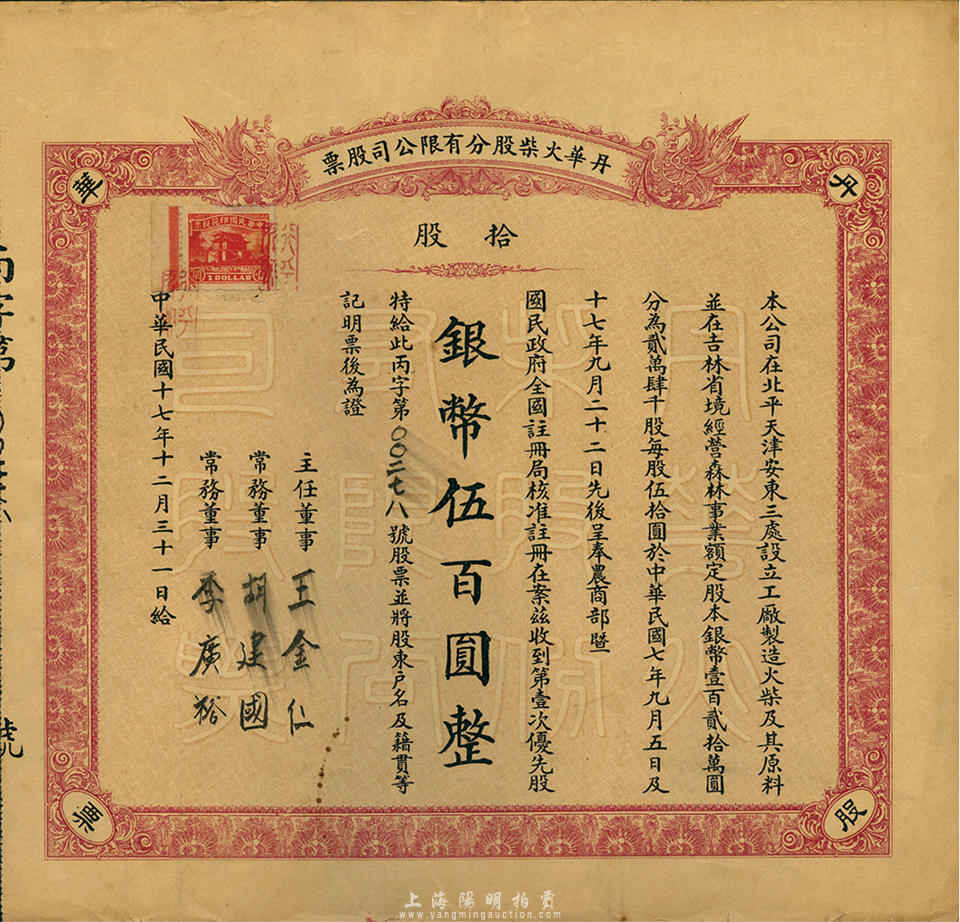 丹華火柴股分有限公司股票
丹
華
股
票
拾股
本公司在北平天津安東三處設立工廠製造火柴及其原料
並在吉林省境經營森林事業額定股本銀幣壹百貳拾萬圓
分為貳萬肆千股每股伍拾圓於中華民國七年九月五日及
十七年九月二十二日先後呈奉農商部暨
國民政府全國註冊局核准註冊在案茲收到第壹次優先股
銀幣伍百圓整
特給此丙字第〇〇二七八號股票並將股東戶名及籍貫等
記明票後為證
主任董事 王金仁
常務董事 胡建國
常務董事 李廣裕
中華民國十七年十二月三十一日給
中華民國印花稅票
1 DOLLAR
丙字第
號
上海陽明拍賣
www.yangmingauction.com